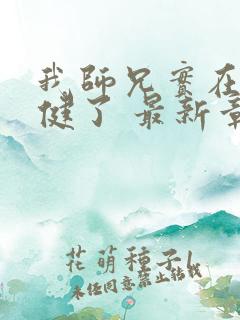 我師兄實在
健了 最新章
花萌種子l
未经同意禁止转载